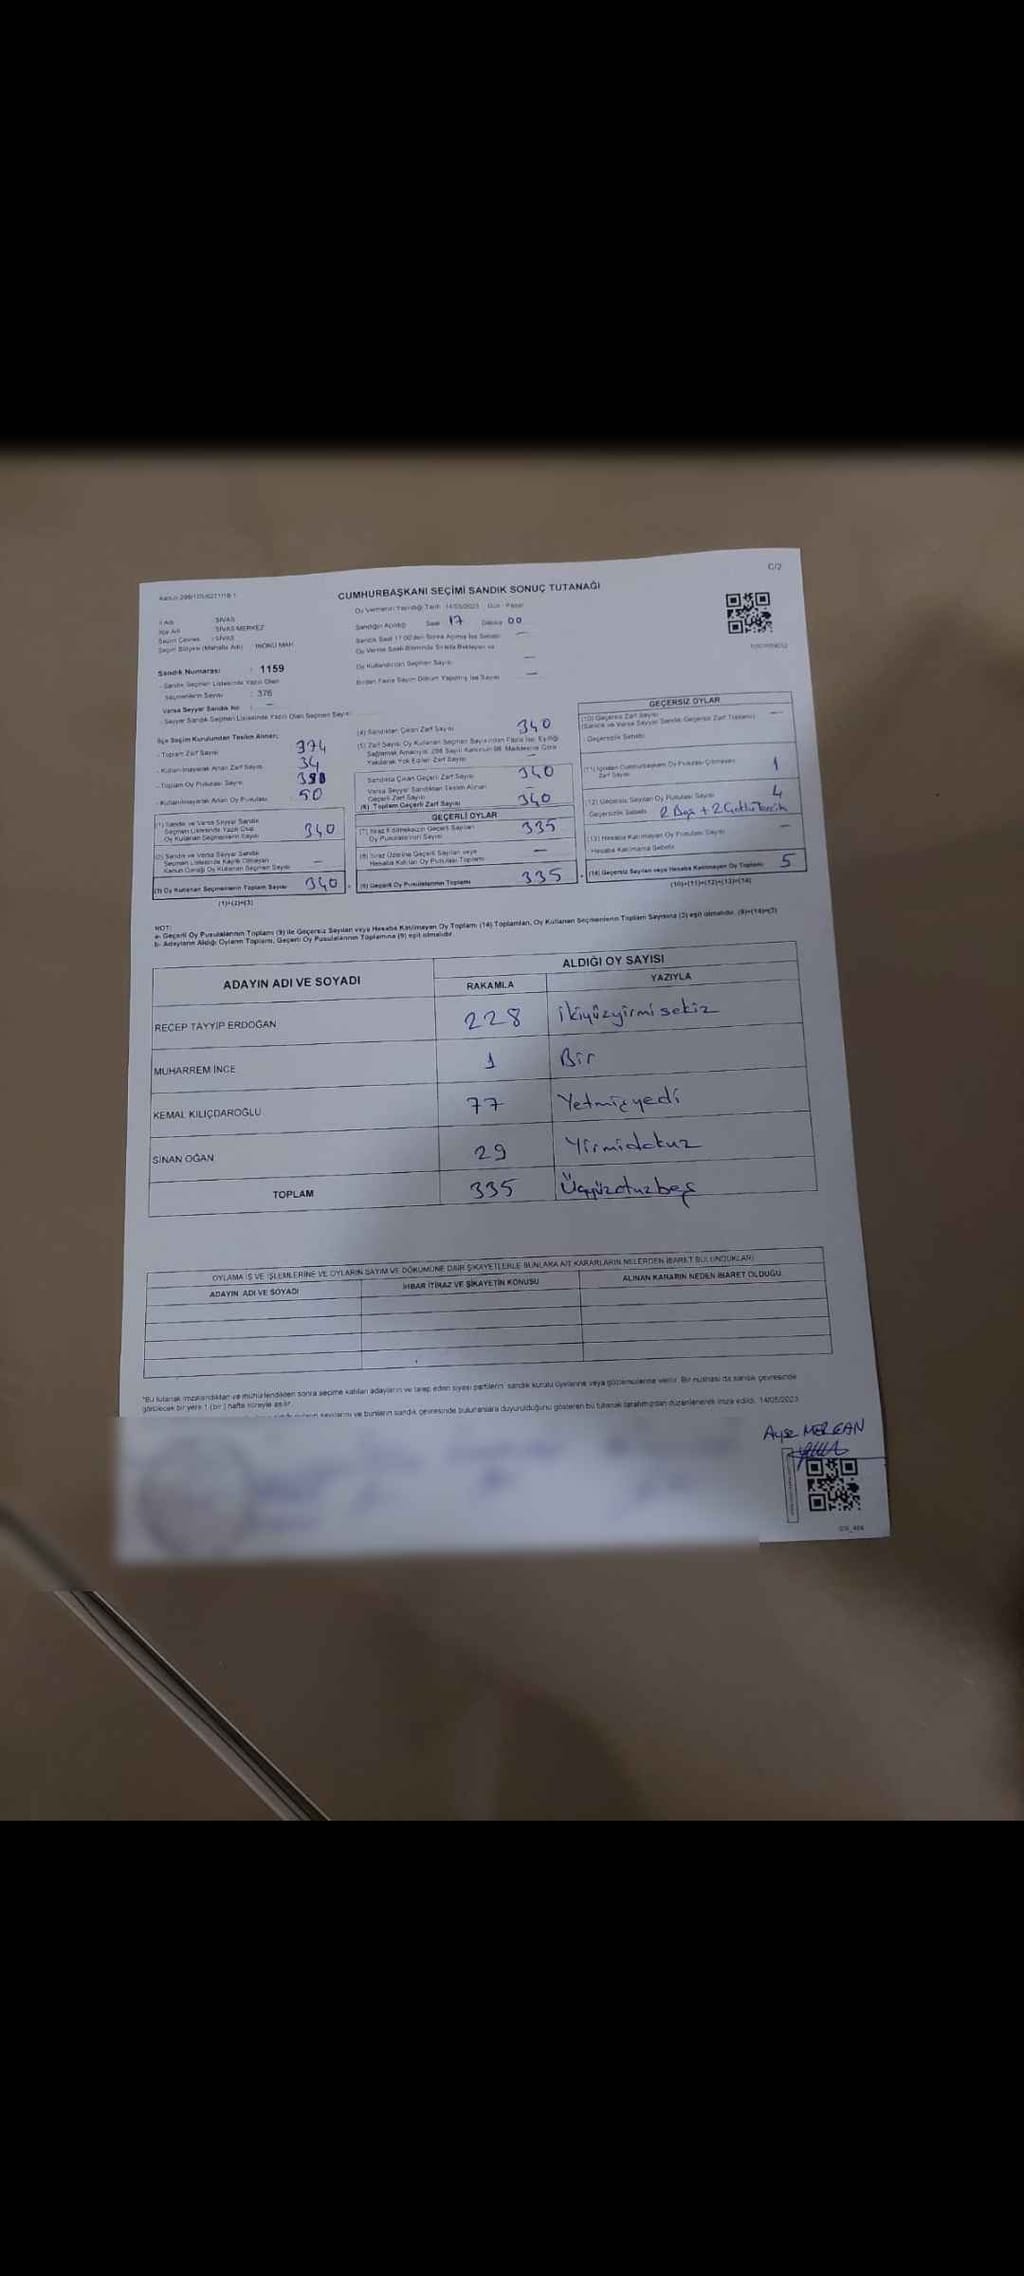 C/2
CUMHURBAŞKANI SEÇİMİ SANDIK SONUÇ TUTANAĞI
Oy Vermenin Yapıldığı Tarih : 14/05/2023 Gün : Pazar
İl Adı : SİVAS
İlçe Adı : SİVAS MERKEZ
Seçim Çevresi : SİVAS
Seçim Bölgesi (Mahalle Adı) : İNÖNÜ MAH.
Sandığın Açıldığı Saat 17 Dakika 00
Sandık Saat 17.00'den Sonra Açılmış İse Sebebi: —
Oy Kullandırılan Seçmen Sayısı —
Birden Fazla Sayım Döküm Yapılmış İse Sayısı —
Sandık Numarası : 1159
- Sandık Seçmen Listesinde Yazılı Olan
Seçmenlerin Sayısı : 376
Varsa Seyyar Sandık No : —
- Seyyar Sandık Seçmen Listesinde Yazılı Olan Seçmen Sayısı
İlçe Seçim Kurulundan Teslim Alınan;
- Toplam Zarf Sayısı 374
- Kullanılmayarak Artan Zarf Sayısı 34
- Toplam Oy Pusulası Sayısı
- Kullanılmayarak Artan Oy Pusulası : 50
(1) Sandık ve Varsa Seyyar Sandık
Seçmen Listesinde Yazılı Olup
Oy Kullanan Seçmenlerin Sayısı 340
(2) Sandık ve Varsa Seyyar Sandık
Seçmen Listesinde Kayıtlı Olmayan
Kanun Gereği Oy Kullanan Seçmen Sayısı —
(3) Oy Kullanan Seçmenlerin Toplam Sayısı 340
(1)+(2)=(3)
(4) Sandıktan Çıkan Zarf Sayısı 340
(5) Zarf Sayısı Oy Kullanan Seçmen Sayısından Fazla İse, Eşitliği
Sağlamak Amacıyla, 298 Sayılı Kanunun 98. Maddesine Göre
Yakılarak Yok Edilen Zarf Sayısı —
Sandıkta Çıkan Geçerli Zarf Sayısı 340
Varsa Seyyar Sandıktan Teslim Alınan
Geçerli Zarf Sayısı —
(6) Toplam Geçerli Zarf Sayısı 340
GEÇERLİ OYLAR
(7) İtiraz Edilmeksizin Geçerli Sayılan
Oy Pusulalarının Sayısı 335
(8) İtiraz Üzerine Geçerli Sayılan veya
Hesaba Katılan Oy Pusulası Toplamı —
(9) Geçerli Oy Pusulalarının Toplamı 335
GEÇERSİZ OYLAR
(10) Geçersiz Zarf Sayısı —
(Sandık ve Varsa Seyyar Sandık Geçersiz Zarf Toplamı)
- Geçersizlik Sebebi
(11) İçinden Cumhurbaşkanı Oy Pusulası Çıkmayan
Zarf Sayısı 1
(12) Geçersiz Sayılan Oy Pusulası Sayısı 4
Geçersizlik Sebebi 2 Boş + 2 Çoklu Tercih
(13) Hesaba Katılmayan Oy Pusulası Sayısı —
- Hesaba Katılmama Sebebi
(14) Geçersiz Sayılan veya Hesaba Katılmayan Oy Toplamı 5
(10)+(11)+(12)+(13)=(14)
NOT:
a- Geçerli Oy Pusulalarının Toplamı (9) ile Geçersiz Sayılan veya Hesaba Katılmayan Oy Toplamı (14) Toplamları, Oy Kullanan Seçmenlerin Toplam Sayısına (3) eşit olmalıdır. (9)+(14)=(3)
b- Adayların Aldığı Oyların Toplamı, Geçerli Oy Pusulalarının Toplamına (9) eşit olmalıdır.
ADAYIN ADI VE SOYADI
ALDIĞI OY SAYISI
RAKAMLA YAZIYLA
RECEP TAYYİP ERDOĞAN 228 ikiyüzyirmisekiz
MUHARREM İNCE 1 Bir
KEMAL KILIÇDAROĞLU 77 Yetmişyedi
SİNAN OĞAN 29 Yirmidokuz
TOPLAM 335 Üçyüzotuzbeş
OYLAMA İŞ VE İŞLEMLERİNE VE OYLARIN SAYIM VE DÖKÜMÜNE DAİR ŞİKAYETLERLE BUNLARA AİT KARARLARIN NELERDEN İBARET BULUNDUKLARI
ADAYIN ADI VE SOYADI İHBAR İTİRAZ VE ŞİKAYETİN KONUSU ALINAN KARARIN NEDEN İBARET OLDUĞU
*Bu tutanak imzalandıktan ve mühürlendikten sonra seçime katılan adayların ve talep eden siyasi partilerin sandık kurulu üyelerine veya gözlemcilerine verilir. Bir nüshası da sandık çevresinde
görülecek bir yere 1 (bir) hafta süreyle asılır.
ve bunların sandık çevresinde bulunanlara duyurulduğunu gösteren bu tutanak tarafımızdan düzenlenerek imza edildi. 14/05/2023
Ayşe MERCAN